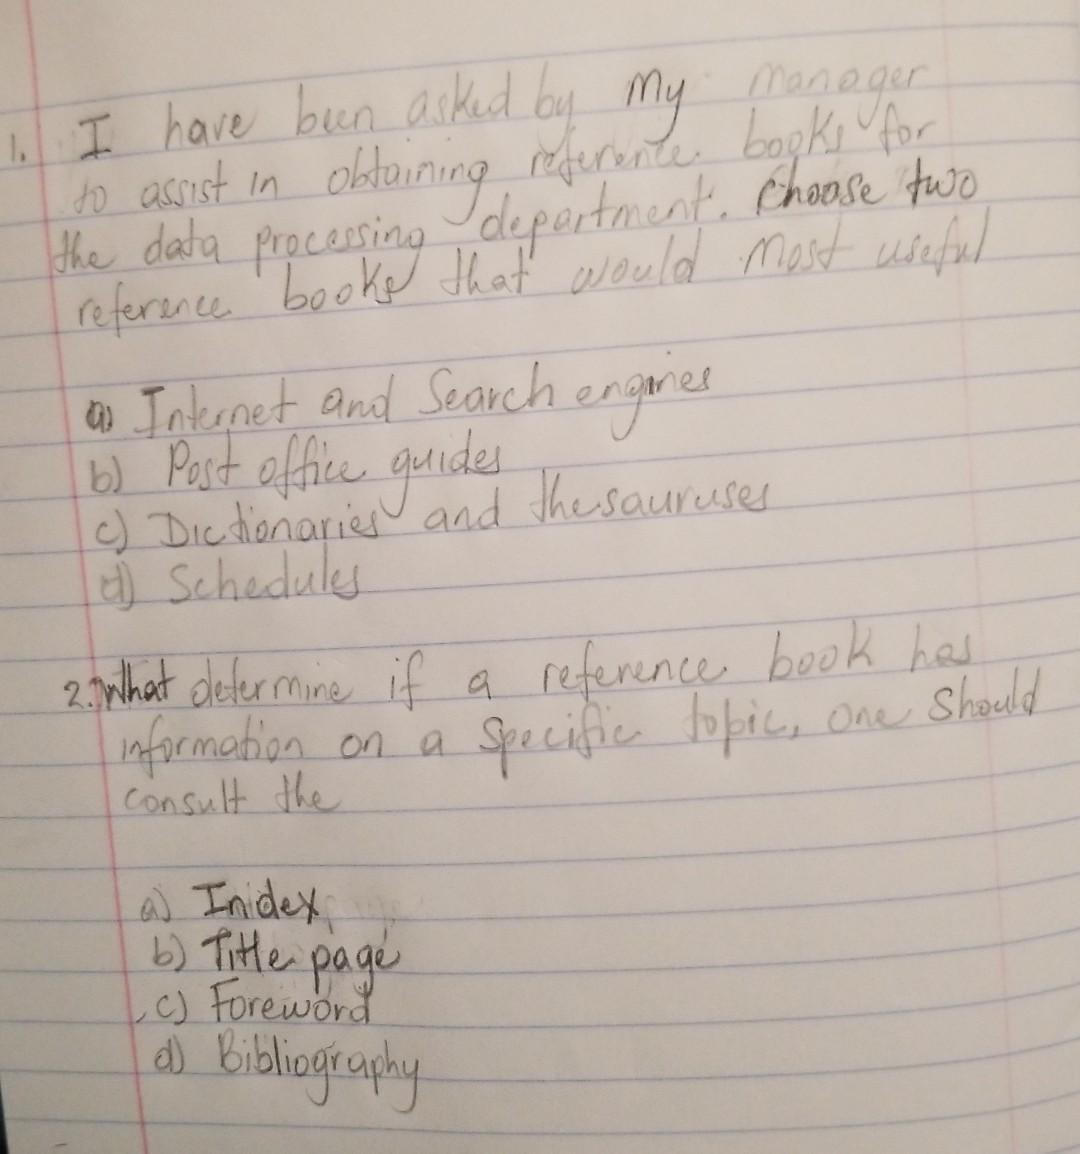 1. I have been asked by my manager
to assist in obtaining reference books for
the data processing department. Choose two
reference books that would most useful
a) Internet and Search engines
b) Post office guides
c) Dictionaries and thesauruses
d) Schedules
2. What determine if a reference book has
information on a specific topic, one should
consult the
a) Inidex
b) Title page
c) Foreword
d) Bibliography